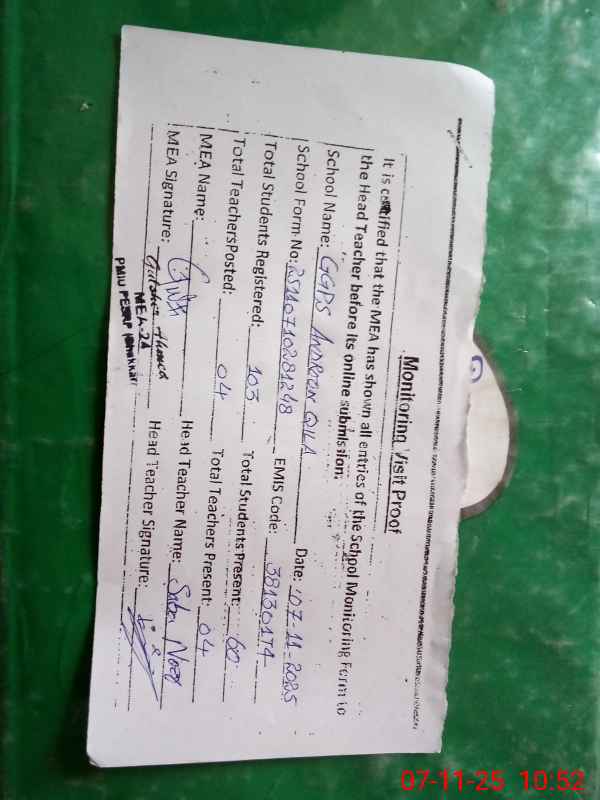 Monitoring Visit Proof
It is certified that the MEA has shown all entries of the School Monitoring Form to
the Head Teacher before its online submission.
School Name: GGPS ANDROON QILA Date: 07-11-2025
School Form No: 25110710281248 EMIS Code: 38130174
Total Students Registered: 103 Total Students Present: 60
Total Teachers Posted: 04 Total Teachers Present: 04
MEA Name: Head Teacher Name: Saba Noor
MEA Signature: Head Teacher Signature:
MEA-24
PMIU PESRP Bhakkar
07-11-25 10:52